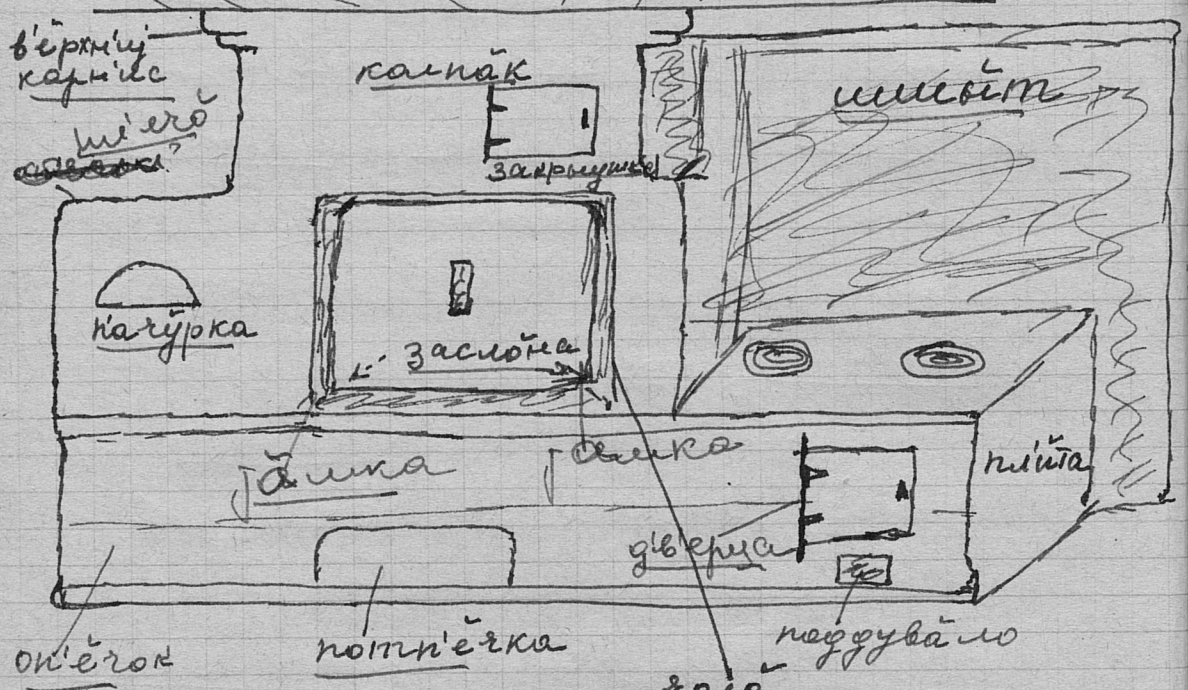 в'е́рхн'иј
карн'и́с
пл'ечо́
колпа́к
закрыушка
шшыйт
п'ачу́рка
засло́на
ја́мка
ја́мка
пл'ита́
дв'е́рца
оп'е́чок
потп'е́чка
поддува́ло